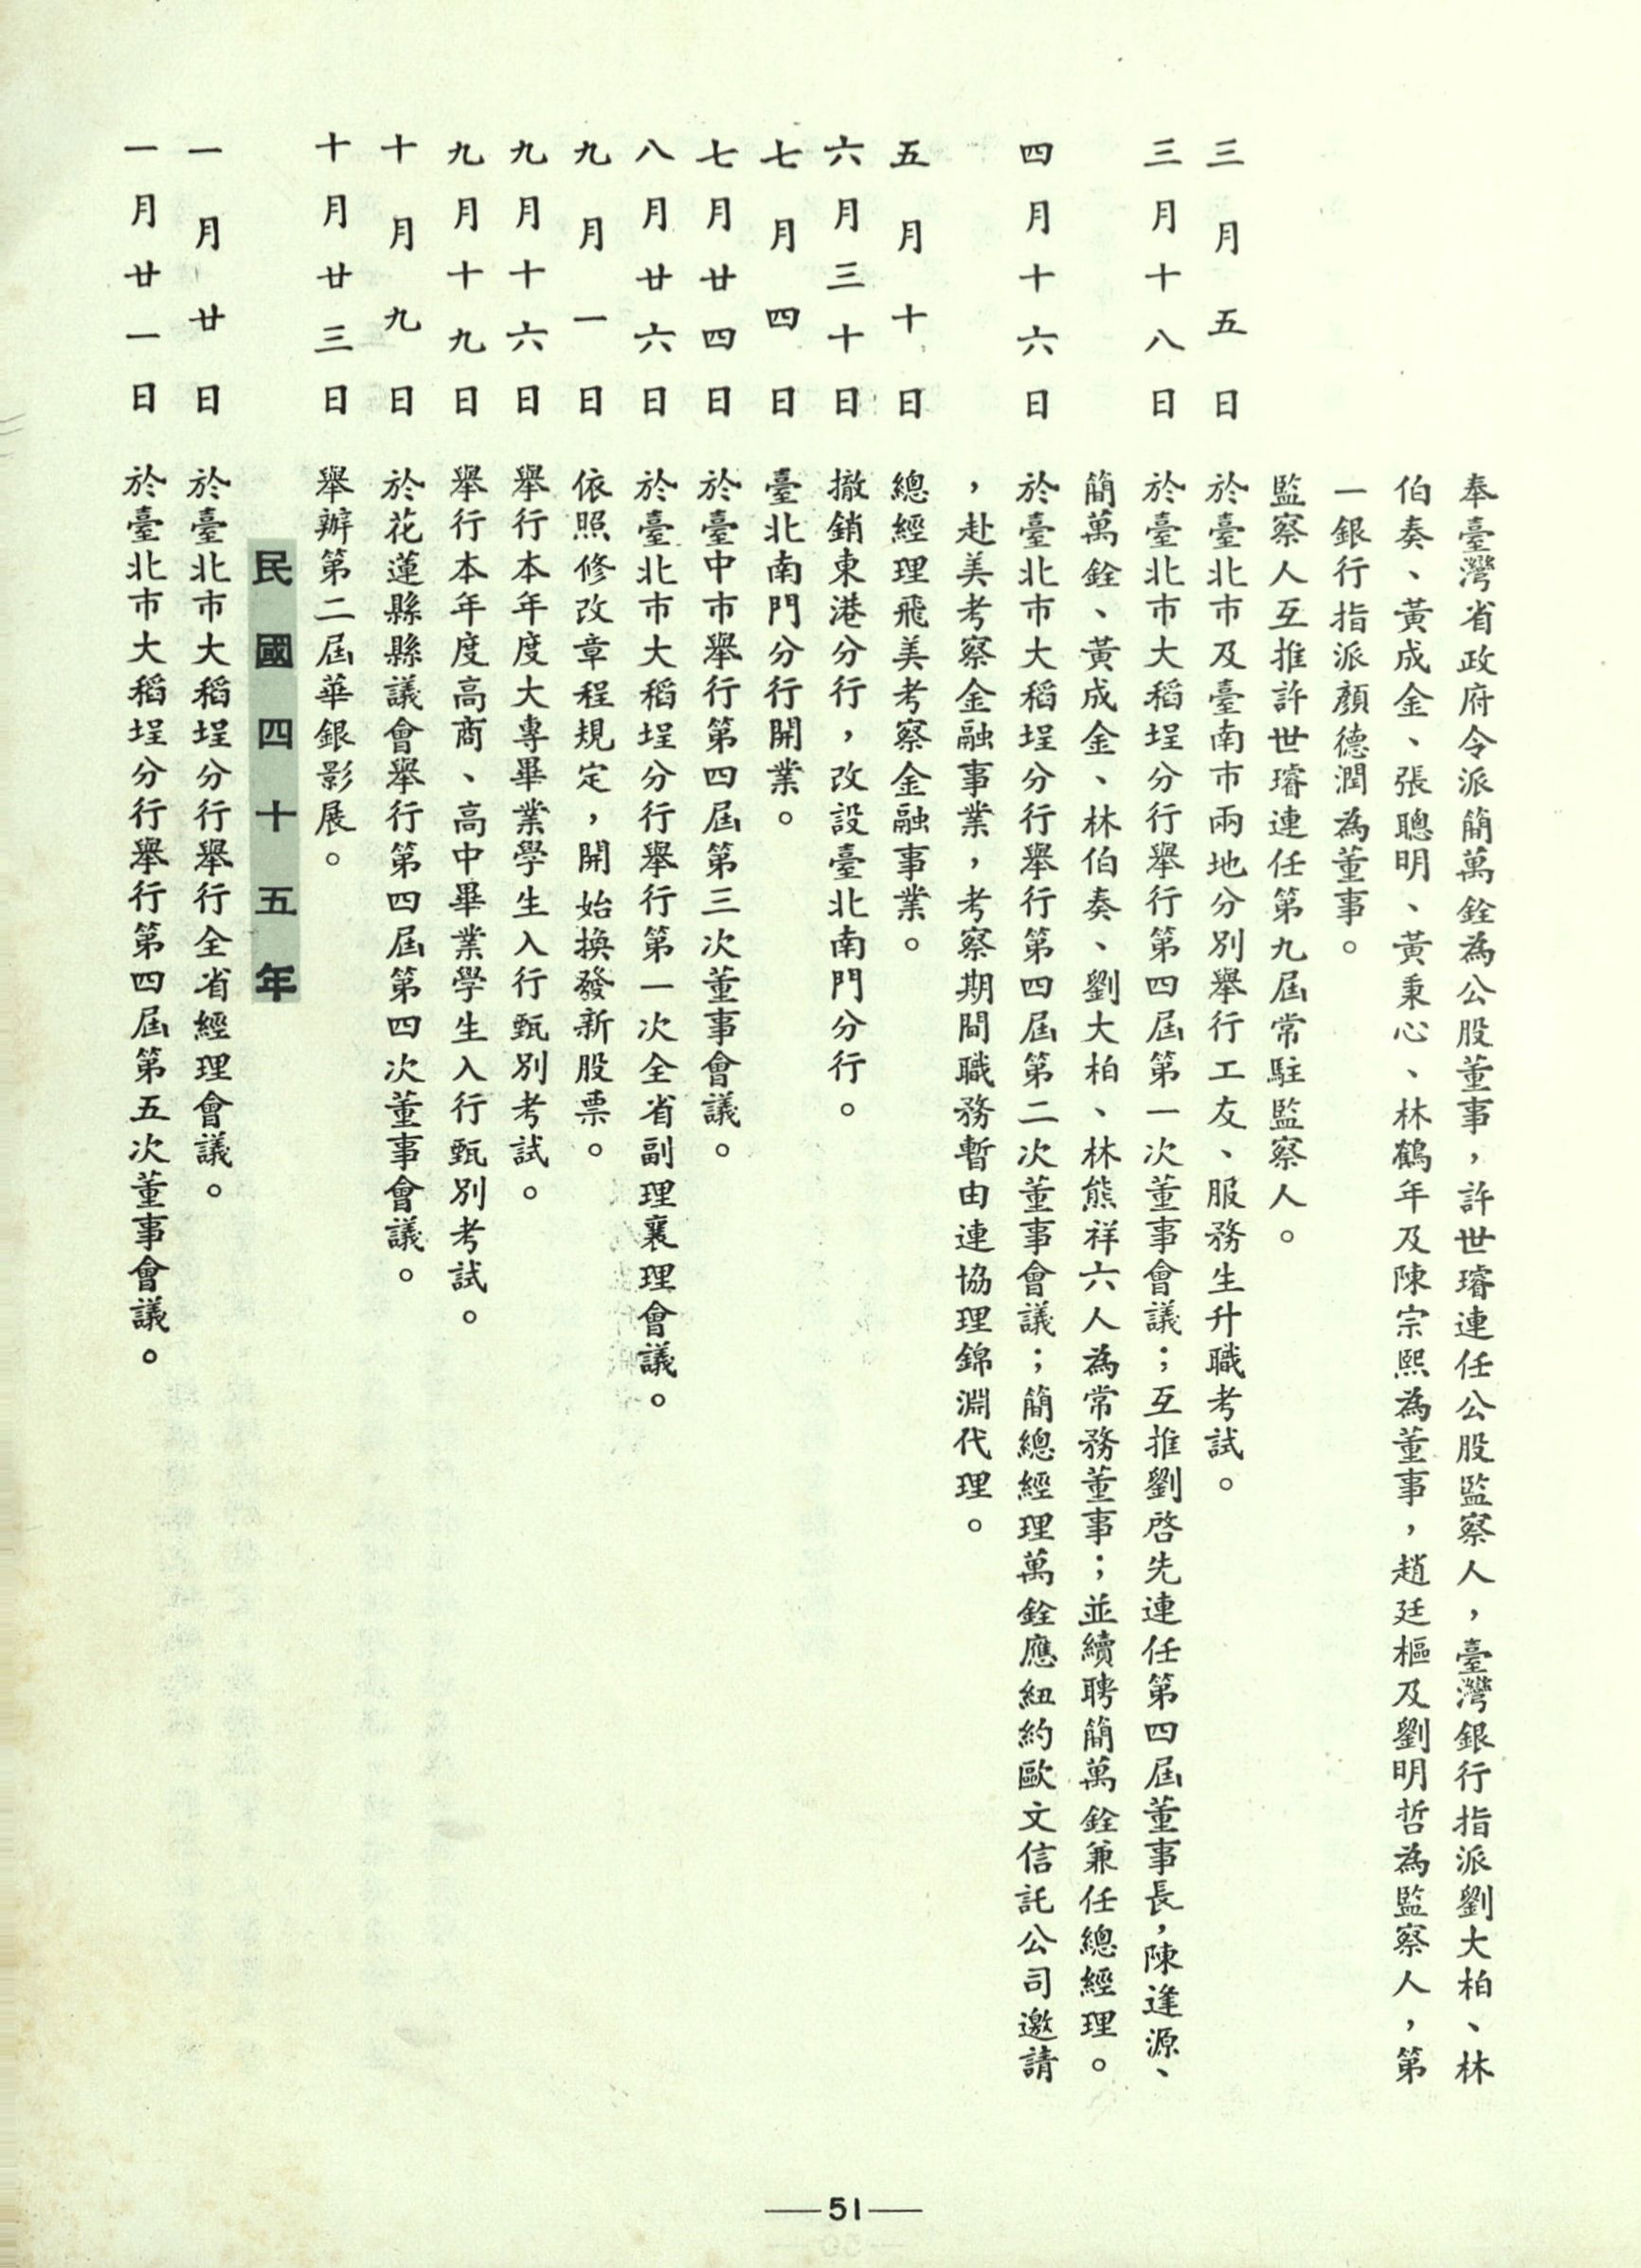 奉臺灣省政府令派簡萬銓為公股董事，許世璿連任公股監察人，臺灣銀行指派劉大柏、林
伯奏、黃成金、張聰明、黃秉心、林鶴年及陳宗熙為董事，趙廷樞及劉明哲為監察人，第
一銀行指派顏德潤為董事。
監察人互推許世璿連任第九屆常駐監察人。
三月五日 於臺北市及臺南市兩地分別舉行工友、服務生升職考試。
三月十八日 於臺北市大稻埕分行舉行第四屆第一次董事會議；互推劉啓先連任第四屆董事長，陳逢源、
簡萬銓、黃成金、林伯奏、劉大柏、林熊祥六人為常務董事；並續聘簡萬銓兼任總經理。
四月十六日 於臺北市大稻埕分行舉行第四屆第二次董事會議；簡總經理萬銓應紐約歐文信託公司邀請
，赴美考察金融事業，考察期間職務暫由連協理錦淵代理。
五月十日 總經理飛美考察金融事業。
六月三十日 撤銷東港分行，改設臺北南門分行。
七月四日 臺北南門分行開業。
七月廿四日 於臺中市舉行第四屆第三次董事會議。
八月廿六日 於臺北市大稻埕分行舉行第一次全省副理襄理會議。
九月一日 依照修改章程規定，開始換發新股票。
九月十六日 舉行本年度大專畢業學生入行甄別考試。
九月十九日 舉行本年度高商、高中畢業學生入行甄別考試。
十月九日 於花蓮縣縣議會舉行第四屆第四次董事會議。
十月廿三日 舉辦第二屆華銀影展。
民國四十五年
一月廿日 於臺北市大稻埕分行舉行全省經理會議。
一月廿一日 於臺北市大稻埕分行舉行第四屆第五次董事會議。
—51—